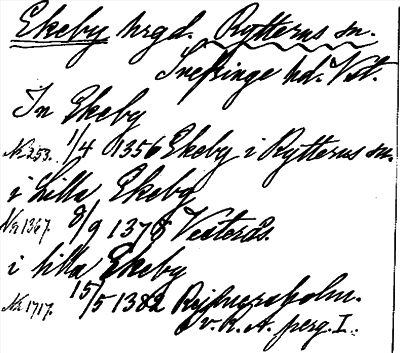 Ekeby hrgd. Rytterns sn.
Snefringe hd. Vst.
In Ekeby
No 253. 1/4 1356 Ekeby i Rytterns sn.
i Lilla Ekeby
No 1367. 8/9 1378 Vesterås.
i lilla Ekeby
No 1717. 15/5 1382
v. R. A. perg. I.